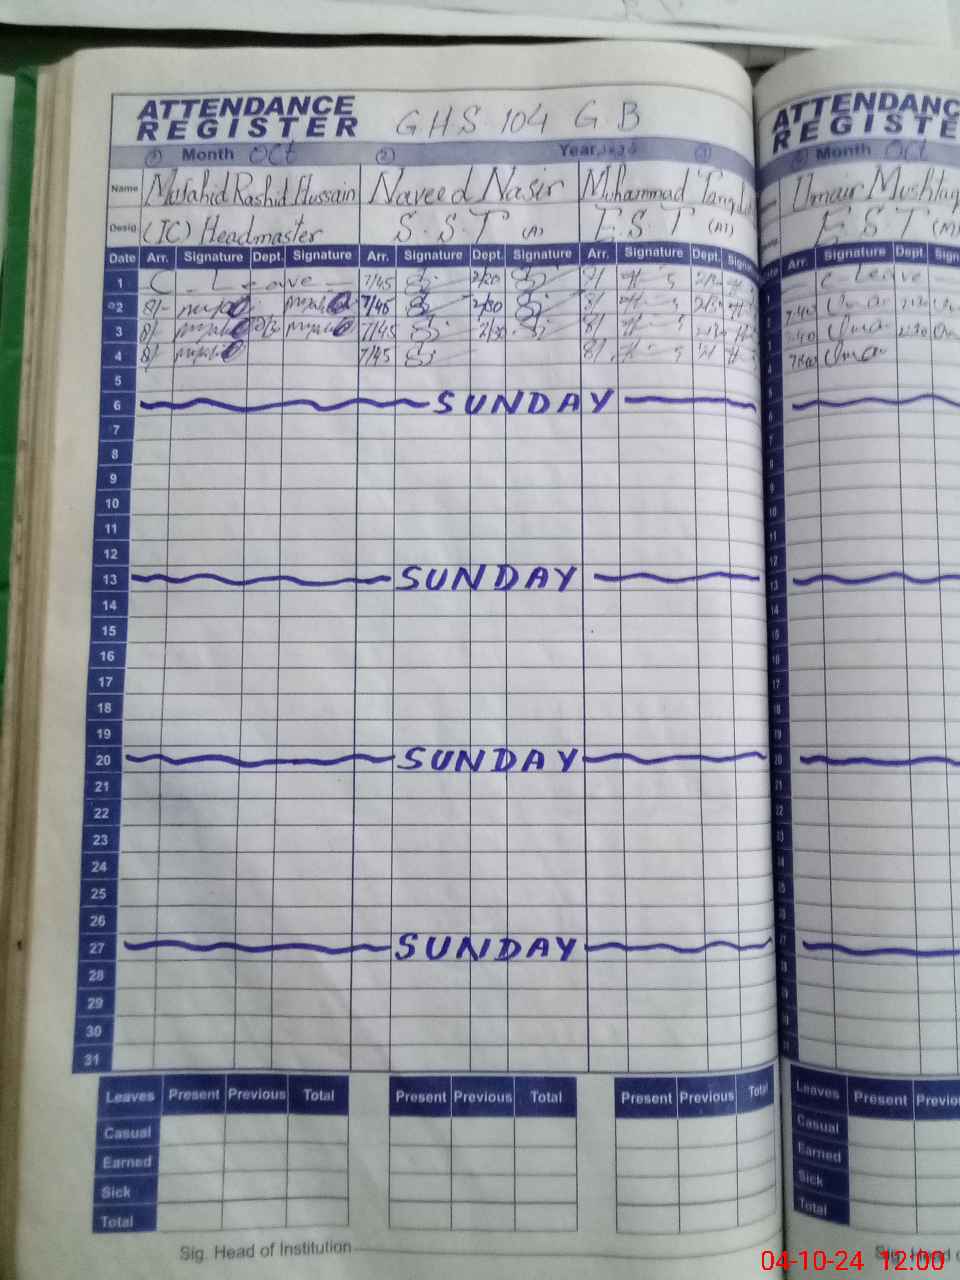 ATTENDANCE REGISTER GHS 104 GB
Month Oct Year
Name Rashid Hussain Naveed Nasir Muhammad
Desig. (IC) Headmaster S.S.T (A) E.S.T (AT)
Date Arr. Signature Dept. Signature Arr. Signature Dept. Signature Arr. Signature Dept.
1 C - Leave - 7/45 2/30 8/
2 8/- 7/45 2/30 8/
3 8/ 7/45 2/30 8/
4 8/ 7/45 8/
5
6 SUNDAY
7
8
9
10
11
12
13 SUNDAY
14
15
16
17
18
19
20 SUNDAY
21
22
23
24
25
26
27 SUNDAY
28
29
30
31
Leaves Present Previous Total Present Previous Total Present Previous Total
Casual
Earned
Sick
Total
Sig. Head of Institution
ATTENDANC
REGISTE
Month Oct
Umair Mushtaq
E.S.T
Arr. Signature Dept.
C-Leave
7:40 Umar
7:40 Umar
Umar
Leaves Present
Casual
Earned
Sick
Total
04-10-24 12:00